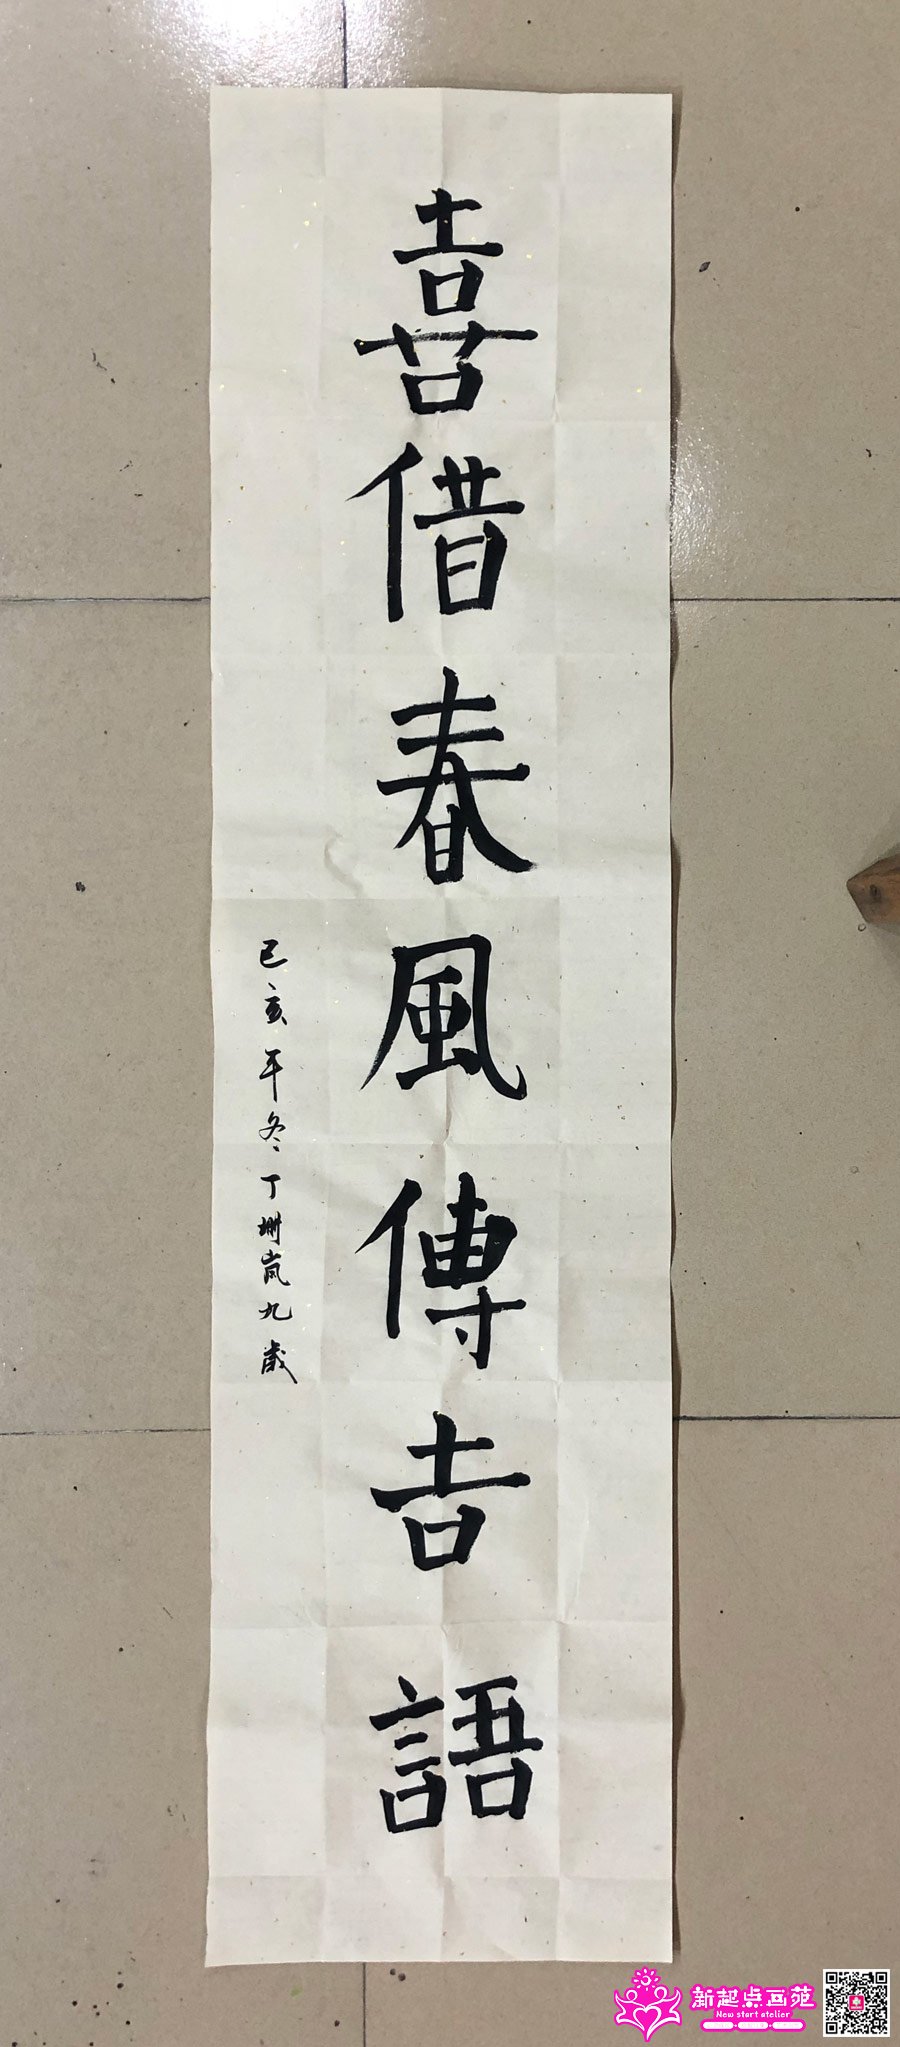 喜借春風傳吉語
己亥年冬丁珊岚九歲
新起点画苑
New start atelier